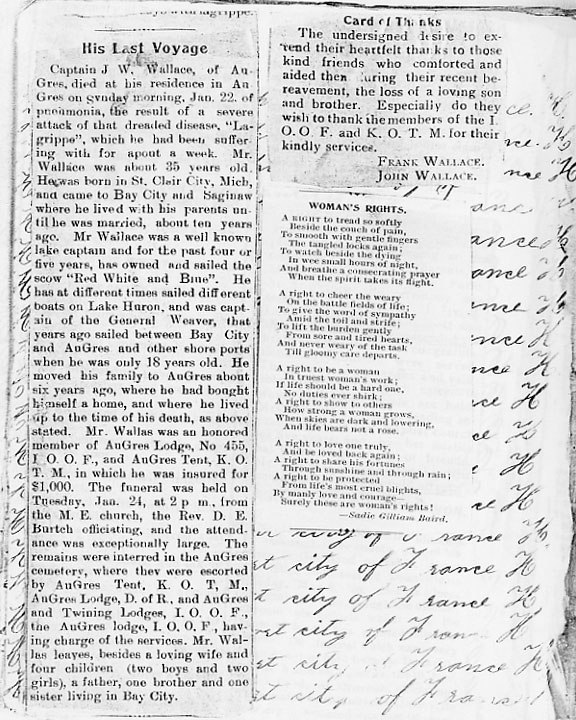 His Last Voyage
Captain J W. Wallace, of Au-
Gres, died at his residence in Au
Gres on gvnday morning, Jan. 22, of
pneumonia, the result of a severe
attack of that dreaded disease, "La-
grippe", which he had been suffer-
ing with for apout a week. Mr.
Wallace was about 35 years old.
He was born in St. Clair City, Mich,
and came to Bay City and Saginaw
where he lived with his parents un-
til he was married, about ten years
ago. Mr Wallace was a well known
lake captain and for the past four or
five years, has owned and sailed the
scow "Red White and Blue". He
has at different times sailed different
boats on Lake Huron, and was capt-
ain of the General Weaver, that
years ago sailed between Bay City
and AuGres and other shore ports
when he was only 18 years old. He
moved his family to AuGres about
six years ago, where he had bought
himself a home, and where he lived
up to the time of his death, as above
stated. Mr. Wallas was an honored
member of AuGres Lodge, No 455,
I O O. F., and AuGres Tent, K. O.
T. M., in which he was insured for
$1,000. The funeral was held on
Tuesday, Jan. 24, at 2 p m, from
the M. E. church, the Rev. D. E.
Burtch officiating, and the attend-
ance was exceptionally large. The
remains were interred in the AuGres
cemetery, where they were escorted
by AuGres Tent, K. O. T, M.,
AuGres Lodge, D. of R., and AuGres
and Twining Lodges, I. O. O. F.,
the AuGres lodge, I. O. O. F, hav-
ing charge of the services. Mr. Wal-
las leayes, besides a loving wife and
four children (two boys and two
girls), a father, one brother and one
sister living in Bay City.
Card of Thanks
The undersigned desire to ex-
tend their heartfelt thanks to those
kind friends who comforted and
aided them during their recent be-
reavement, the loss of a loving son
and brother. Especially do they
wish to thank the members of the I.
O. O F. and K. O. T. M. for their
kindly services.
FRANK WALLACE.
JOHN WALLACE.
WOMAN'S RIGHTS.
A RIGHT to tread so softly
Beside the couch of pain,
To smooth with gentle fingers
The tangled locks again;
To watch beside the dying
In wee small hours of night,
And breathe a consecrating prayer
When the spirit takes its flight.
A right to cheer the weary
On the battle fields of life;
To give the word of sympathy
Amid the toil and strife;
To lift the burden gently
From sore and tired hearts,
And never weary of the task
Till gloomy care departs.
A right to be a woman
In truest woman's work;
If life should be a hard one,
No duties ever shirk;
A right to show to others
How strong a woman grows,
When skies are dark and lowering,
And life bears not a rose.
A right to love one truly,
And be loved back again;
A right to share his fortunes
Through sunshine and through rain;
A right to be protected
From life's most cruel blights,
By manly love and courage—
Surely these are woman's rights!
—Sadie Gilliam Baird.
ce. H
nce. H
nce H
ance H
ance H
ance H
ance H
city of France H
st city of France H
t city of France H
st city of France H
st city of France H
st city of France H